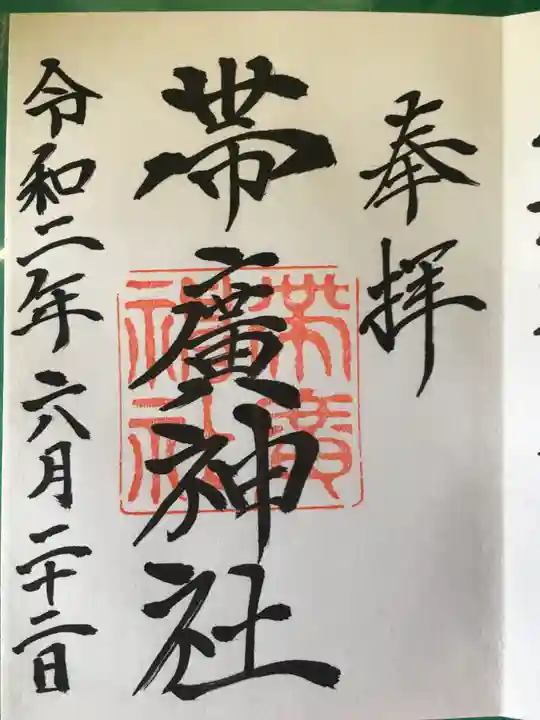 奉拝
帯廣神社
帯廣神社
令和二年六月二十二日